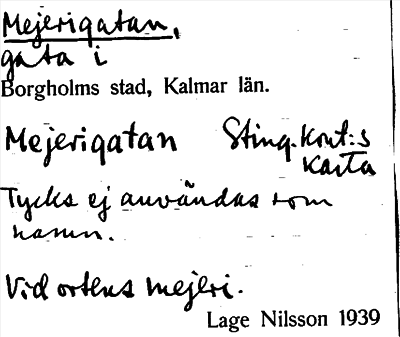 Mejerigatan,
gata i
Borgholms stad, Kalmar län.
Mejerigatan Sting.kont:s
karta
Tycks ej användas som
namn.
Vid ortens mejeri.
Lage Nilsson 1939